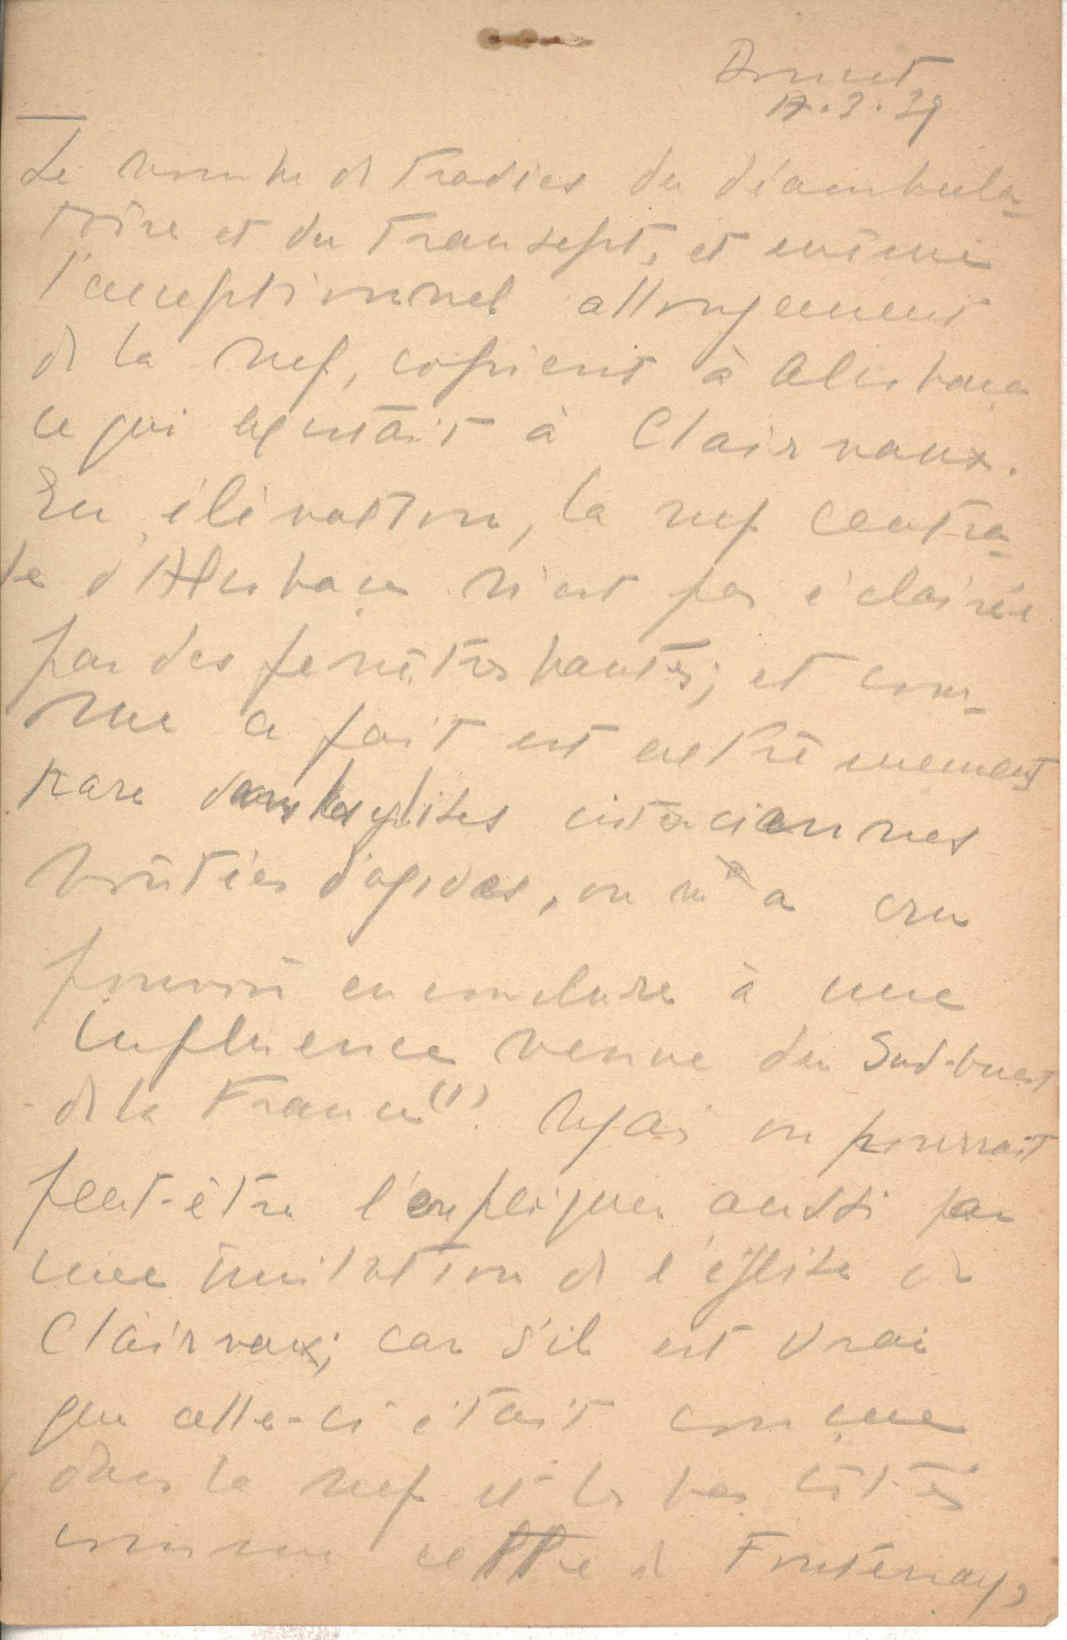 17.3.39
Le nombre de travées du déambula-
toire et du transept, et même
l'exceptionnel allongement
de la nef, copient à Alcobaça
ce qui existait à Clairvaux.
En élévation, la nef centra-
le d'Alcobaça n'est pas éclairée
par des fenêtres hautes; et com-
me ce fait est extrêmement
rare dans les églises cisterciennes
voûtées d'ogives, on a cru
pouvoir en conclure à une
influence venue du Sud-Ouest
de la France (1). Mais on pourrait
peut-être l'expliquer aussi par
une imitation de l'église de
Clairvaux; car s'il est vrai
que celle-ci était conçue
dans la nef et les bas côtés
comme celle de Fontenay,